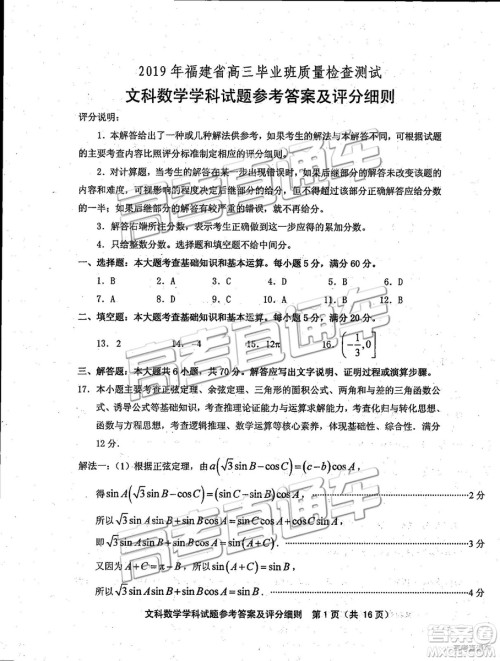 2019 年福建省高三毕业班质量检查测试
文科数学学科试题参考答案及评分细则
评分说明：
1．本解答给出了一种或几种解法供参考，如果考生的解法与本解答不同，可根据试题
的主要考查内容比照评分标准制定相应的评分细则．
2．对计算题，当考生的解答在某一步出现错误时，如果后继部分的解答未改变该题的
内容和难度，可视影响的程度决定后继部分的给分，但不得超过该部分正确解答应给分数的
一半；如果后继部分的解答有较严重的错误，就不再给分．
3．解答右端所注分数，表示考生正确做到这一步应得的累加分数．
4．只给整数分数．选择题和填空题不给中间分．
一、选择题：本大题考查基础知识和基本运算。每小题 5 分，满分 60 分．
1．B 2．A 3．C 4．B 5．B 6．D
7．D 8．A 9．D 10．B 11．D 12．D
二、填空题：本大题考查基础知识和基本运算。每小题 5 分，满分 20 分．
13．2 14．4 15．12π 16．[-1/3,0)
三、解答题：本大题共 6 小题，共 70 分．解答应写出文字说明、证明过程或演算步骤
17．本小题主要考查正弦定理、余弦定理、三角形的面积公式、两角和与差的三角函数公
式、诱导公式等基础知识，考查运算求解能力，考查函数与方程思想、化归与转化思想、
分类与整合思想，考查逻辑推理、数学运算等核心素养，体现基础性、综合性．满分
12 分．
解法一：（1）根据正弦定理，由 a(√3sinB−cosC)=(c−b)cosA，
得 sinA(√3sinB−cosC)=(sinC−sinB)cosA，………2 分
所以 √3sinAsinB+sinBcosA=sinAcosC+cosAsinC，
即 √3sinAsinB+sinBcosA=sin(A+C)，………3 分
又因为 A+C=π−B，所以 sin(A+C)=sinB，
所以 √3sinAsinB+sinBcosA=sinB，………4 分
文科数学学科试题参考答案及评分细则 第 1 页（共 16 页）
高考直通车
高考直通车
高考直通车